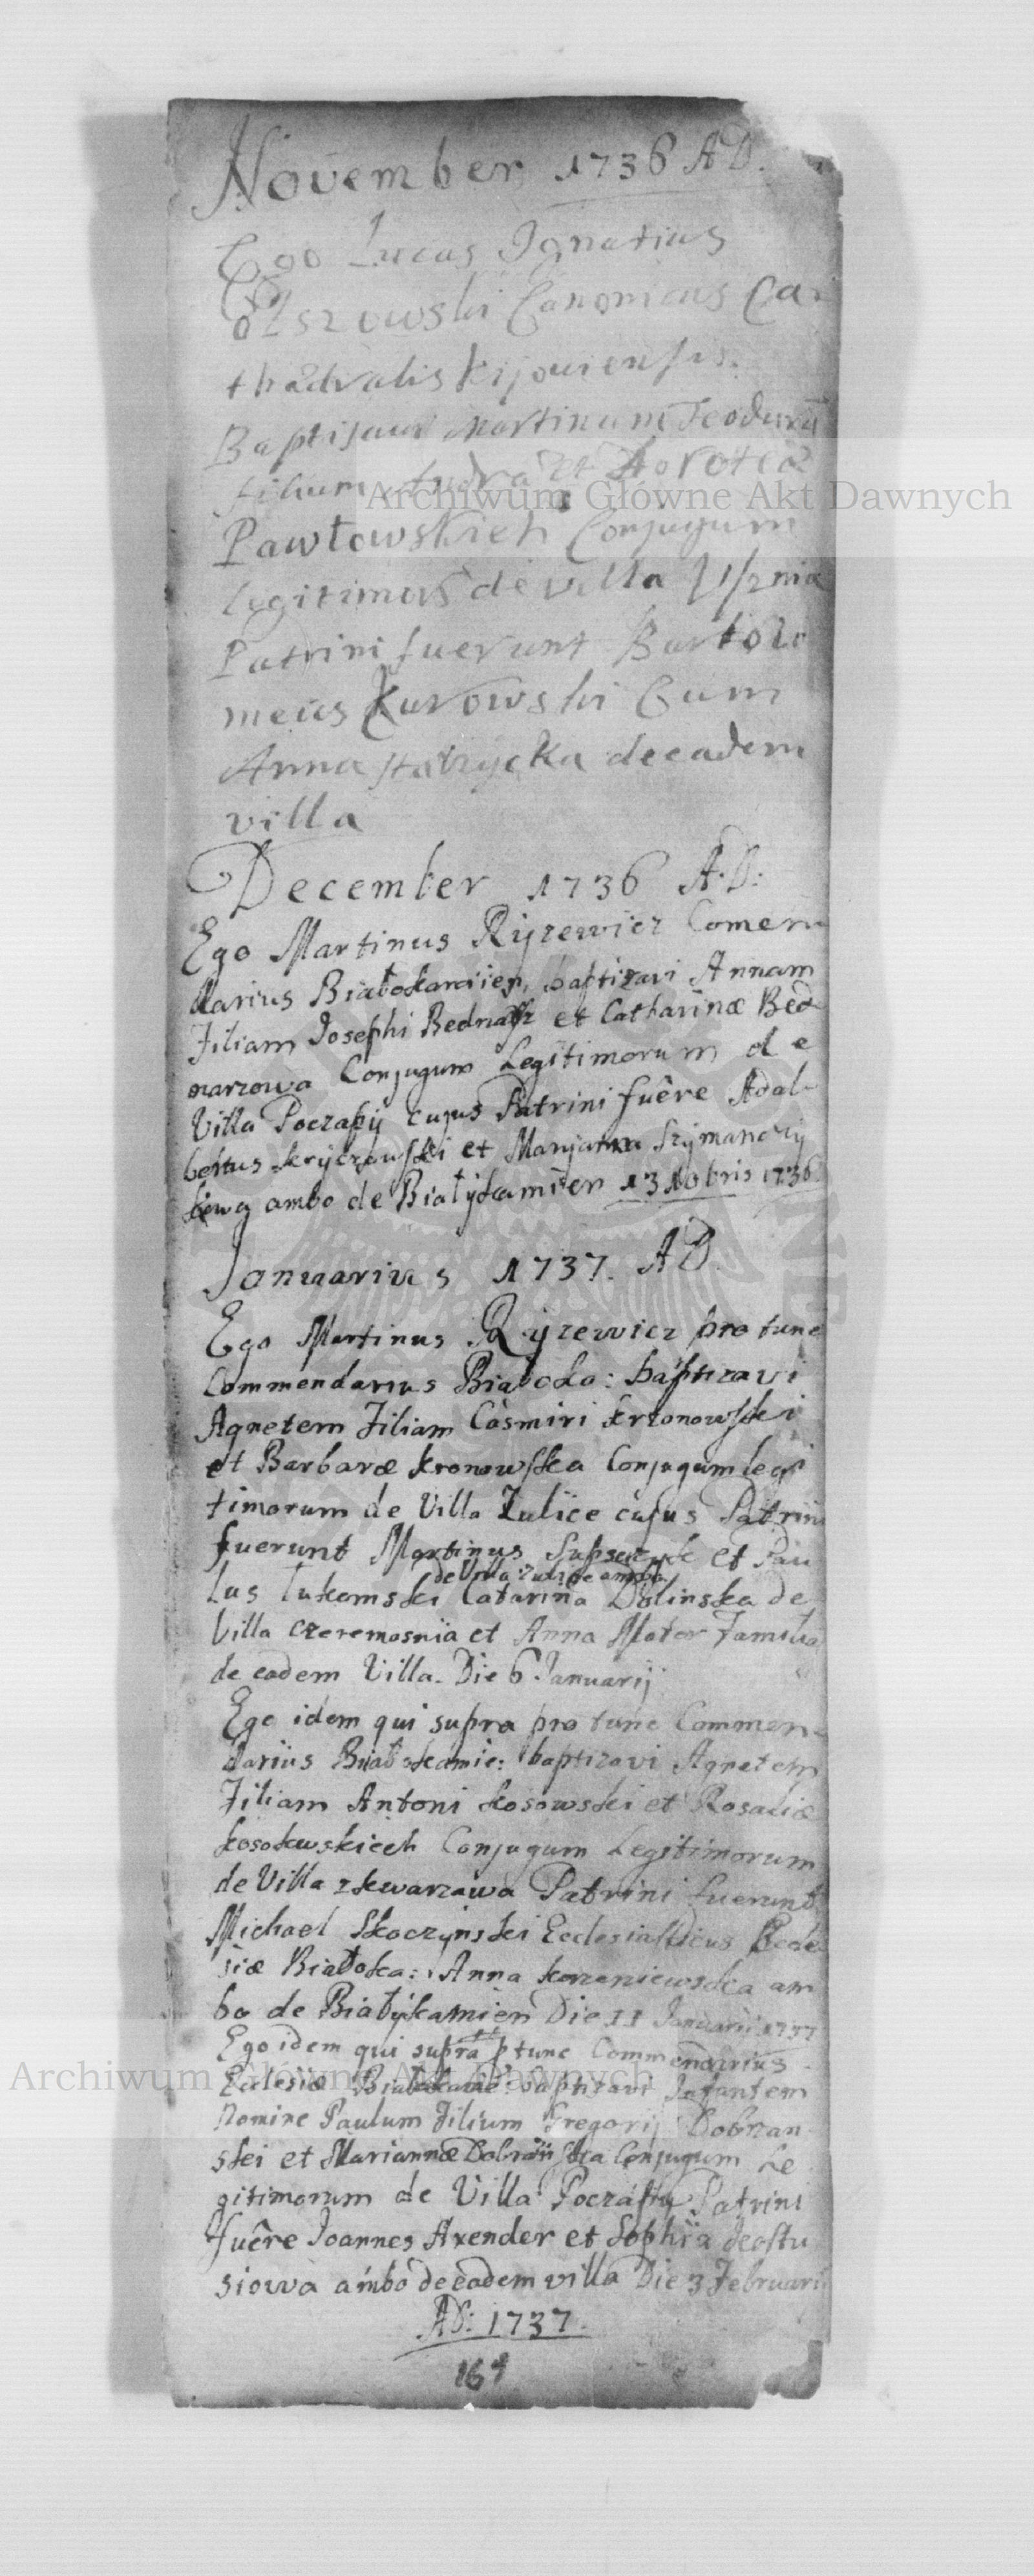 November 1736 AD.
Ego Lucas Ignatius
Olszowski Canonicus Ca
thædralis Kijouiensis.
Baptisaui Martinum Teodorū
filium Andræ et Doroteæ
Archiwum Główne Akt Dawnych
Pawłowskich Conjugum
legitimorū de villa Usznia
Patrini fuerunt Bartolo
meus Kurowski Cum
Anna de eadem
villa
December 1736 A.D:
Ego Martinus Ryzewicz Comen
darius Białokamien, baptizavi Annam
Filiam Josephi Bednarz et Catharinæ Bed
narzowa Conjugum Legitimorum de
Villa Poczapy cujus Patrini fuêre Adal-
bertus Kryczowski et Maryanna Szymanowy
kowa ambo de Białykamien 13 Xbris 1736
Januarius 1737. AD.
Ego Martinus Ryzewicz pro tunc
Commendarius Białoka: baptizavi
Agnetem Filiam Casmiri Krzonowski
et Barbaræ Kronowska Conjugum legi
timorum de Villa Zulice cujus Patrini
fuerunt Martinus et Pau
de Villa Zulice ambo
lus Lukomski Catarina Dolinska de
Villa Czeremosnia et Anna Mater Familia
de eadem Villa. Die 6 Januarij
Ego idem qui supra pro tunc Commen-
darius Białokamie: baptizavi Agnetem
Filiam Antoni Kosowski et Rosaliæ
Kosokwskiech Conjugum Legitimorum
de Villa zkwarzawa Patrini fuerunt
Michael Skoczynski Ecclesiasticus Eccle
siæ Białoka: Anna Korzeniewska am
bo de Białykamien Die 11 Januarii 1737
Ego idem qui supra ptunc Commendarius
Archiwum Główne Akt Dawnych
Ecclesiæ Białokamie: baptizavi Infantem
Nomine Paulum Filium Gregorij Dobrzan
ski et Mariannæ Dobrańska Conjugum Le
gitimorum de Villa Poczapy Patrini
fuêre Joannes Arender et Sophia
siowa ambo de eadem villa Die 3 Februarii
AD: 1737.
164